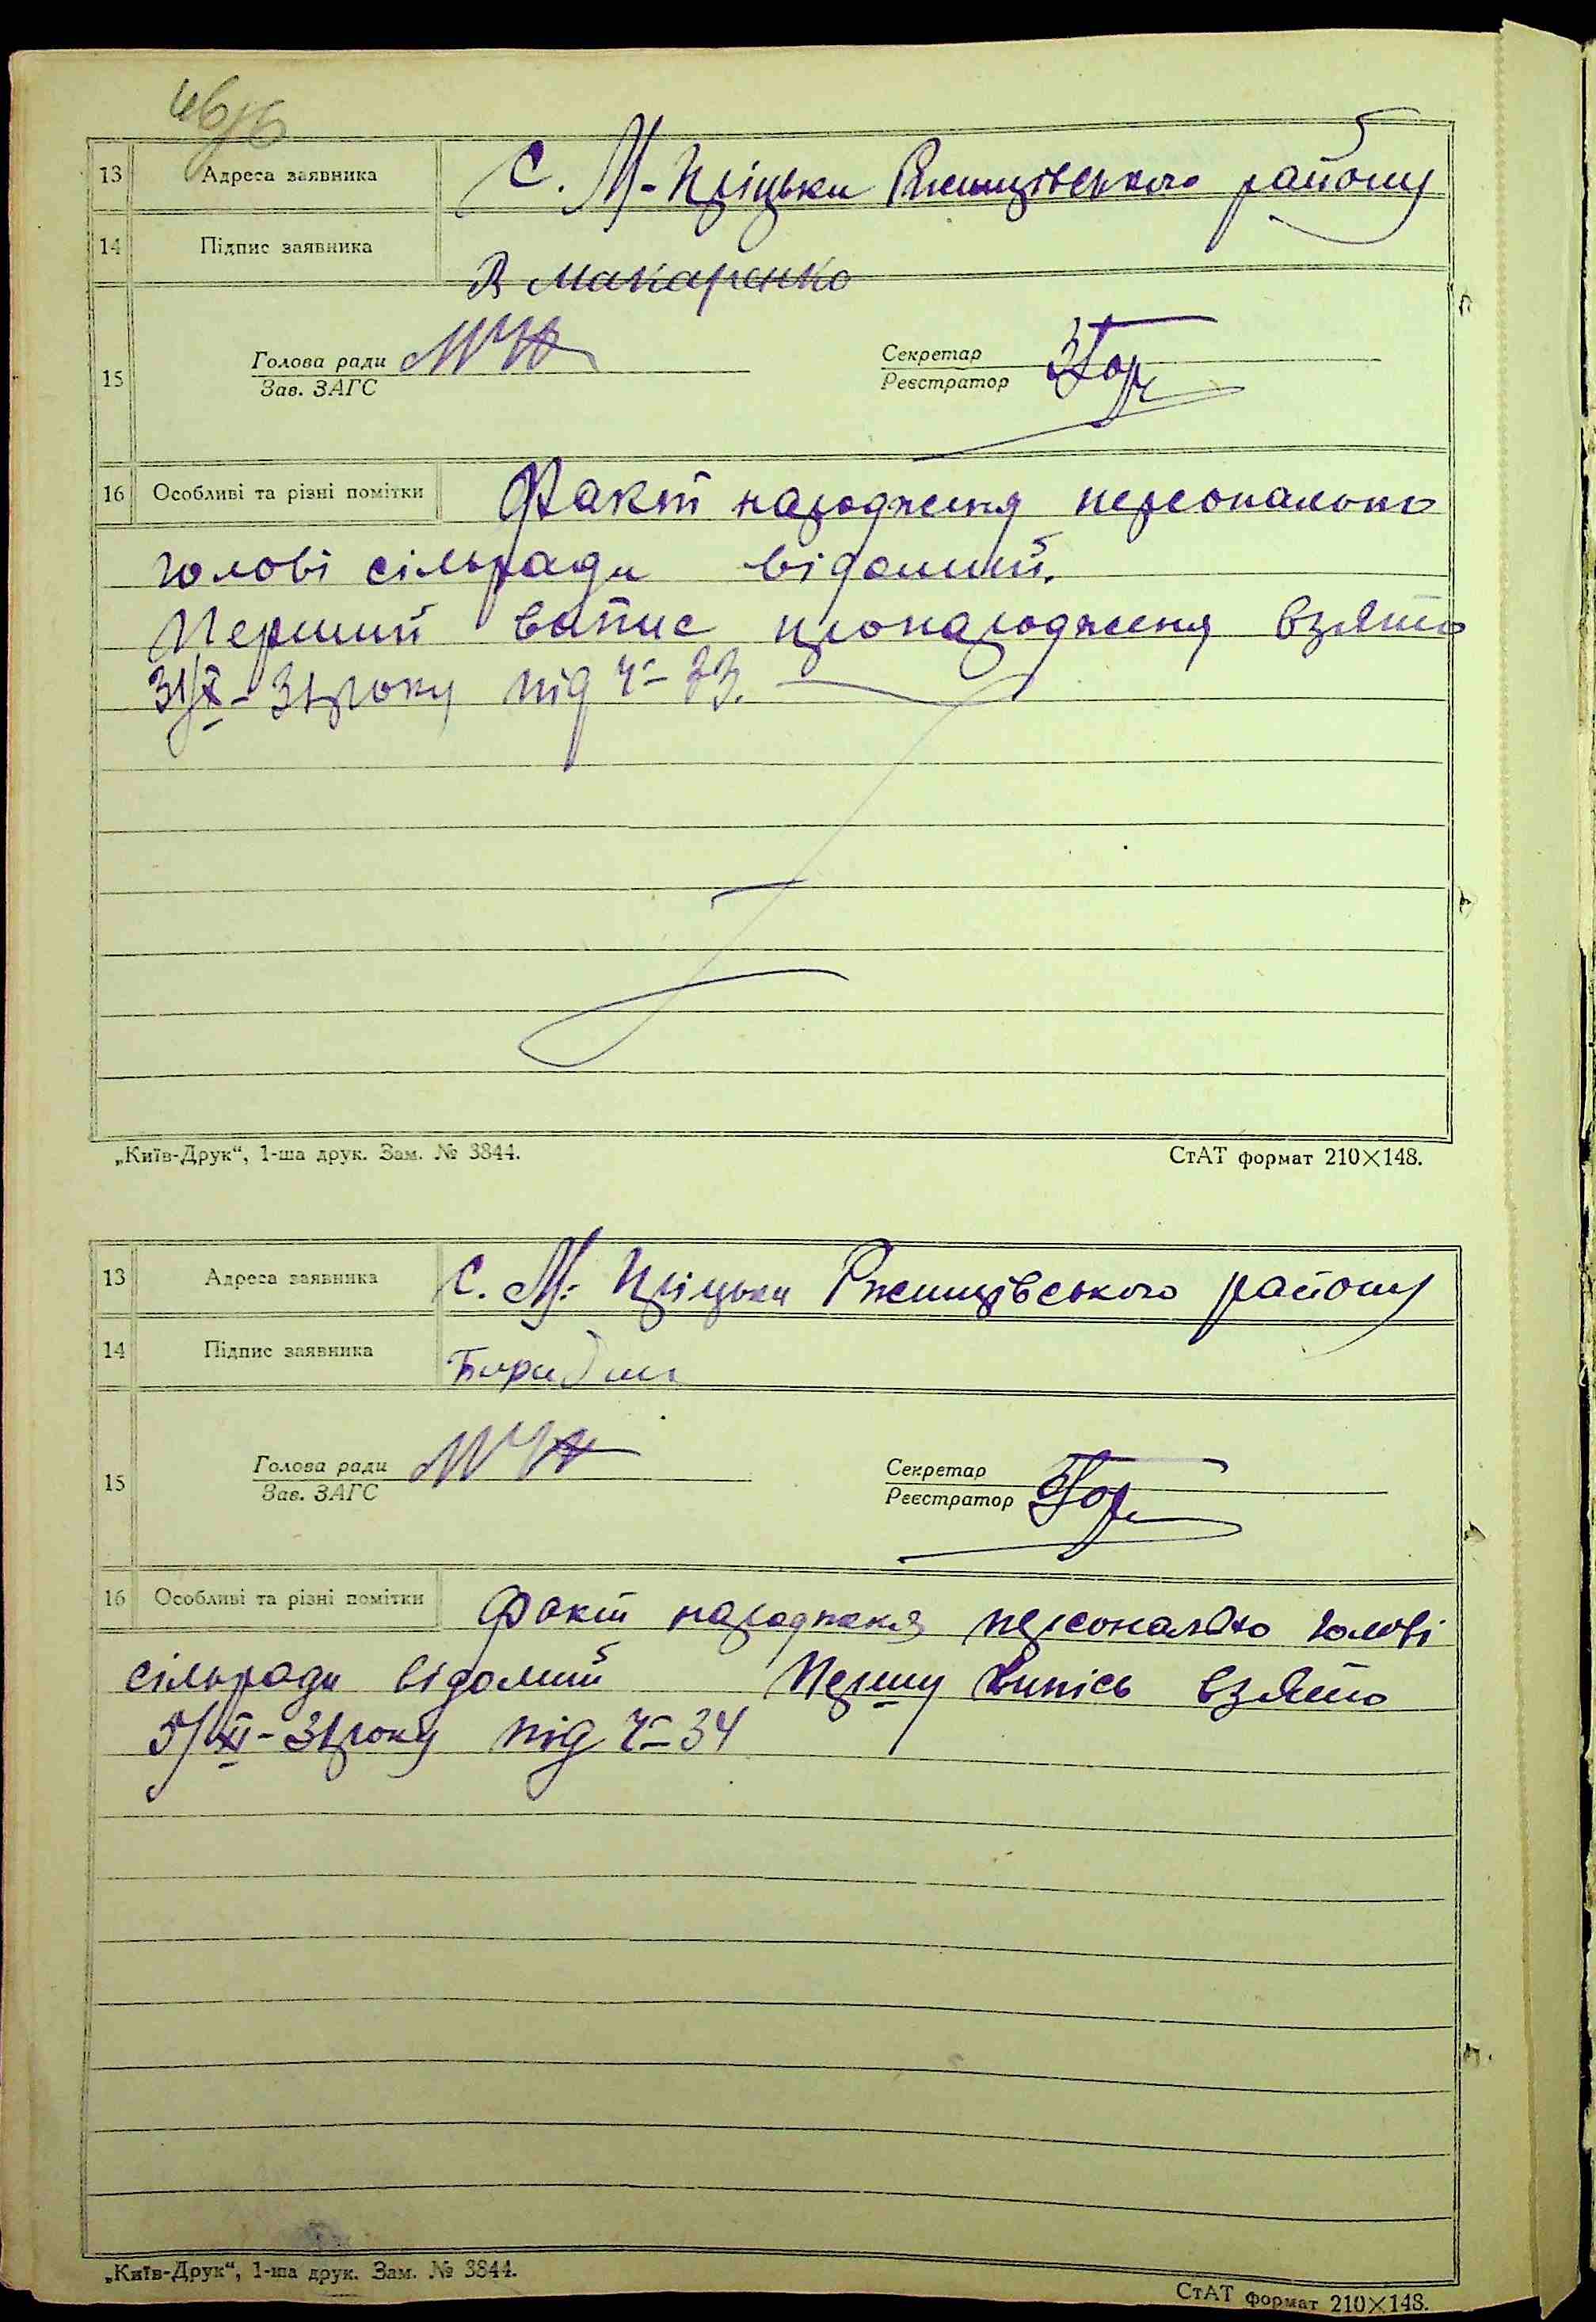 13 Адреса заявника С. М-Пріцьки Ржищівського району
14 Підпис заявника
Макаренко
15 Голова ради Секретар
Зав. ЗАГС Реєстратор
16 Особливі та різні помітки Факт народження персонально
голові сільради відомий.
Перший запис пронародження взято
31/X-31 року під Ч- 33.
„Київ-Друк“, 1-ша друк. Зам. № 3844. СтАТ формат 210×148.
13 Адреса заявника С. М. Пріцьки Ржищівського району
14 Підпис заявника
15 Голова ради Секретар
Зав. ЗАГС Реєстратор
16 Особливі та різні помітки Факт народження персонально голові
сільради відомий Першу випісь взято
5/XI-31 року під Ч- 34
„Київ-Друк“, 1-ша друк. Зам. № 3844.
СтАТ формат 210×148.